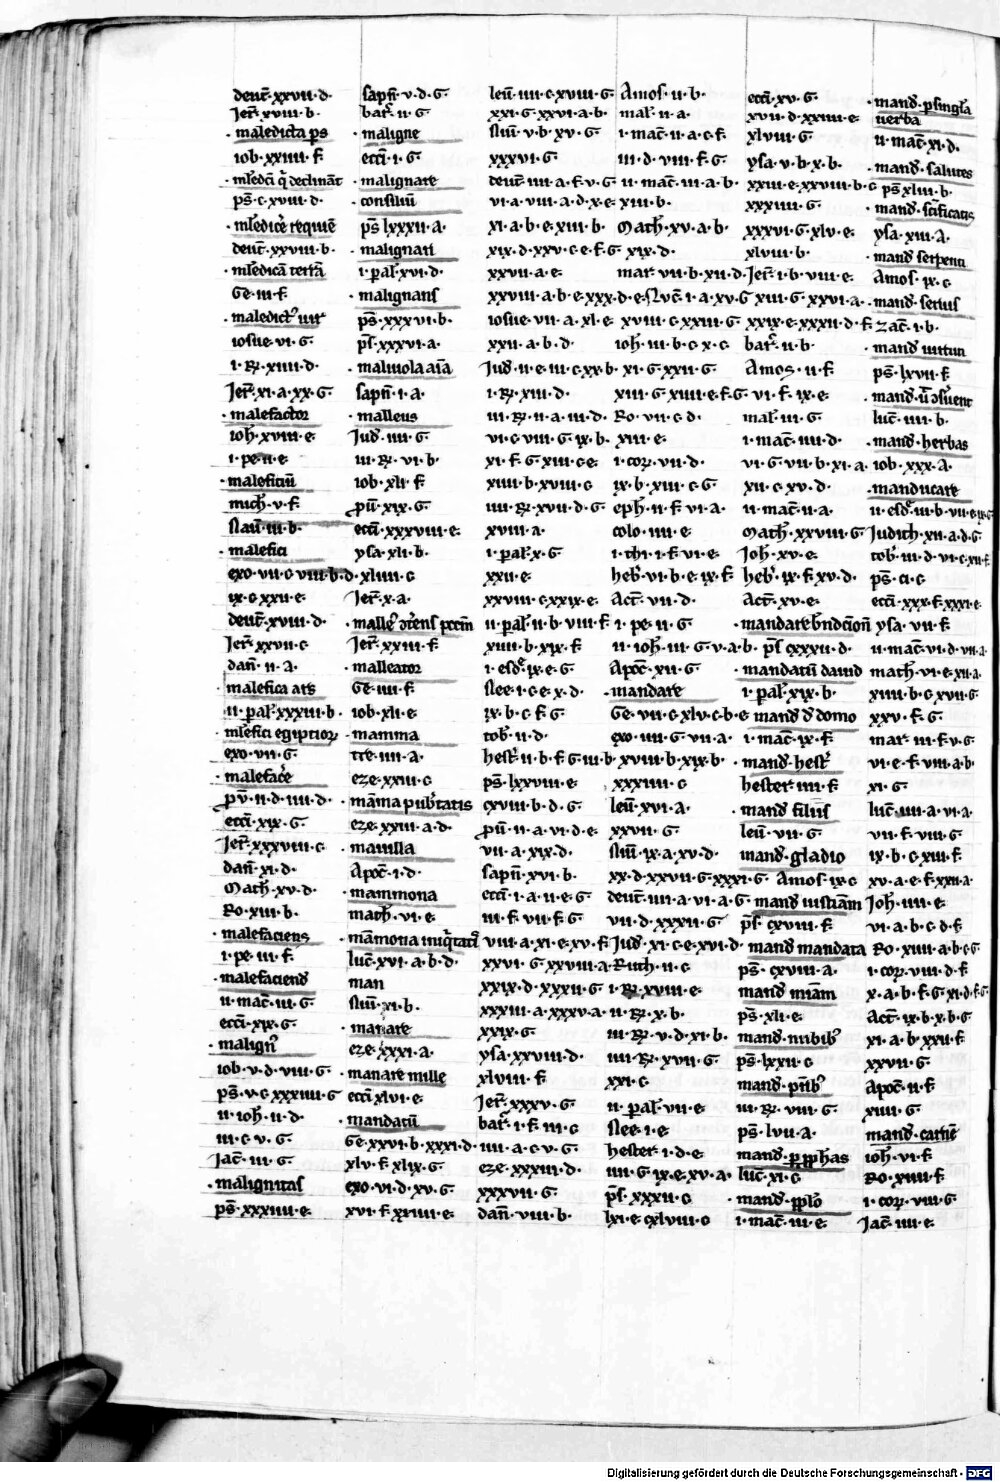 deut̄·xxvii·d·
Jer̄·xviii·b·
·maledicta p̄s
iob·xxiiii·f
p̄s·c·xviii·d·
deut̄·xxviii·b·
Ge·iii·f
iosue·vi·G·
i·R·xiiii·d·
Jer̄·xi·a·xx·G·
·malefactor
ioh̄·xviii·e·
i·pe·ii·e·
·maleficiū
mich̄·v·f·
·malefici
exo·vii·c·viii·b·d·
ix·c·xxii·e·
deut̄·xviii·d·
Jer̄·xxvii·c
dan̄·ii·a·
·malefica ars
ii·paral̄·xxxiii·b·
exo·vii·G·
·maleface
prov̄·ii·d·iiii·d·
ecc̄i·xix·G·
Jer̄·xxxviii·c
dan̄·xi·d·
Math̄·xv·d·
Ro·xiii·b·
·malefaciens
i·pe·iii·f·
·malefaciend
ii·mac̄·iii·G·
ecc̄i·xix·G·
·malign̄
iob·v·d·viii·G·
p̄s·v·c·xxxiiii·G
ii·ioh̄·ii·d·
iii·c·v·G·
Jac̄·iii·G·
·malignitas
p̄s·xxxiiii·e·
sapn̄·v·d·G·
bar̄·ii·G·
·maligne
ecc̄i·i·G·
·malignare
·consiliū
p̄s·lxxxii·a·
·malignari
i·pal̄·xvi·d·
·malignans
p̄s·xxxvi·b·
p̄s·xxxvi·a·
·malivola aīa
sapn̄·i·a·
·malleus
Jud̄·iiii·G·
iii·R·vi·b·
iob·xli·f·
prov̄·xix·G·
ecc̄i·xxxviii·e·
ysa·xli·b·
xliiii·c
Jer̄·x·a·
Jer̄·xxiii·f·
·malleator
Ge·iiii·f·
iob·xli·e·
·mamma
tre·iiii·a·
eze·xxiii·c
·māma pub̄tatis
eze·xxiii·a·d·
·maxilla
Apoc̄·i·d·
·mammona
math̄·vi·e·
luc̄·xvi·a·b·d·
man
·manare
eze·xxxi·a·
·manare mille
ecc̄i·xlvi·e·
·mandatū
Ge·xxvi·b·xxxi·d·
xlv·f·xlix·G·
exo·vi·d·xv·G·
xvi·f·xxiiii·e·
leū·iiii·c·xviii·G·
xxi·G·xxvi·a·b·
xxxvi·G·
deut̄·iiii·a·f·v·G·
vi·a·viii·a·d·x·e·
xi·a·b·e·xiii·b·
xix·d·xxv·c·e·f·G·
xxvii·a·e·
xxviii·a·b·e·xxx·d·e·
iosue·vii·a·xi·e·
xxii·a·b·d·
Jud̄·ii·e·iii·c·xx·b·
i·R·xiii·d·
iii·R·ii·a·iii·d·
vi·c·viii·G·ix·b·
xi·f·G·xiii·c·e·
xiii·b·xviii·c
iiii·R·xvii·d·G·
xviii·a·
i·paral̄·x·G·
xxii·e·
xxviii·c·xxix·e·
ii·paral̄·ii·b·viii·f·
xiiii·b·xix·f·
i·esd̄·ix·e·G·
ix·b·c·f·G·
tob̄·ii·d·
p̄s·lxxviii·e·
cxviii·b·d·G·
prov̄·ii·a·vi·d·e·
vii·a·xix·d·
sapn̄·xvi·b·
ecc̄i·i·a·ii·e·G·
iii·f·vii·f·G·
viii·a·xi·e·xv·f·
xxvi·G·xxviii·a·
xxix·d·xxxii·G·
xxxiii·a·xxxv·a·
xxxix·G·
ysa·xxviii·d·
xlviii·f·
Jer̄·xxxv·G·
bar̄·i·f·iii·c
iiii·a·c·v·G·
eze·xxxiii·d·
xxxvii·G·
dan̄·viii·b·
Amos·ii·b·
mal̄·ii·a·
i·mac̄·ii·a·c·f·
iii·d·viii·f·G·
ii·mac̄·iii·a·b·
xiii·b·
Math̄·xv·a·b·
xix·d·
mar̄·vii·b·xii·d·
xviii·c·xxiii·G·
ioh̄·iii·b·c·x·c·
xi·G·xxii·G·
xiii·G·xiiii·e·f·G·
Ro·vii·c·d·
xiii·e·
i·cor̄·vii·d·
ix·b·xiii·c·G·
eph̄·ii·f·vi·a·
colo·iiii·e·
i·thi·i·f·vi·e·
heb̄·vi·b·e·ix·f·
Act̄·vii·d·
i·pe·ii·G·
ii·ioh̄·iii·G·v·a·b·
Apoc̄·xii·G·
·mandare
Ge·vii·c·xlv·c·b·e·
exo·iiii·G·vii·a·
xviii·b·xix·b·
xxxiiii·G·
leū·xvi·a·
xxvii·G·
xx·d·xxvii·G·xxxi·G·
deut̄·iiii·a·vi·a·G·
vii·d·xxxii·G·
Jud̄·xi·c·e·xvi·d·
Ruth·ii·c
i·R·xviii·e·
ii·R·x·b·
iii·R·v·d·xi·b·
iiii·R·xvii·G·
xxi·c
ii·paral̄·vii·e
hester·i·d·e·
iiii·G·ix·e·xv·a·
p̄s·xxxii·c
lxi·e·cxlviii·c
ecc̄i·xv·G·
xvii·d·xxiiii·e·
xlviii·G·
ysa·v·b·x·b·
xxiii·e·xxviii·b·c
xxxiiii·G·
xxxvi·G·xlv·e·
xlviii·b·
Jer̄·i·b·viii·e·
xiii·G·xxvi·a·
xxix·e·xxxii·d·f·
bar̄·ii·b·
Amos·ii·f·
vi·f·ix·e·
mal̄·iii·G·
i·mac̄·iiii·d·
vi·G·vii·b·xi·a·
xii·c·xv·d·
ii·mac̄·ii·a·
Math̄·xxviii·G·
Joh̄·xv·e·
heb̄·ix·f·xv·d·
Act̄·xv·e·
p̄s·cxxxii·d·
·mandatū david
i·paral̄·xix·b·
·mand̄ d̄ domo
i·mac̄·ix·f·
·mand̄·hest̄
hester·iiii·f·
·mand̄ filiis
leū·vii·G·
·mand̄·gladio
Amos·ix·c
·mand̄ iustiām
p̄s·cxviii·f·
·mand̄ mandata
p̄s·cxviii·a·
·mand̄ miām
p̄s·xli·e·
·mand̄·nubib̄
p̄s·lxxii·c
iii·R·viii·G·
p̄s·lvii·a·
luc̄·xi·c
i·mac̄·iii·e·
·mand̄·p singl̄a
verba
ii·mac̄·xi·d·
·mand̄·salutes
p̄s·xliii·b·
·mand̄·sc̄ificatis
ysa·xiii·a·
·mand̄ serpenti
Amos·ix·c
·mand̄·servis
zac̄·i·b·
·mand̄ virtuti
p̄s·lxvii·f·
luc̄·iiii·b·
·mand̄·herbas
iob·xxx·a·
·manducare
Judith·xii·a·d·G
tob̄·iii·d·vi·c·xii·f·
p̄s·ci·c
ecc̄i·xxx·f·xxxi·e·
ysa·vii·f·
ii·mac̄·vi·d·vii·a·
math̄·vi·e·xii·a·
xiiii·b·c·xvii·G·
xxv·f·G·
mar̄·iii·f·v·G·
vi·e·f·viii·a·b·
xi·G·
luc̄·iiii·a·vi·a·
vii·f·viii·G·
ix·b·c·xiii·f·
xv·a·e·f·xxii·a·
Joh̄·iiii·e·
vi·a·b·c·d·f·
Ro·xiiii·a·b·c·G·
i·cor̄·viii·d·f·
x·a·b·f·G·xi·d·f·G·
Act̄·ix·b·x·b·G
xi·a·b·xxii·f·
xxvii·G·
Apoc̄·ii·f·
xiiii·G·
mand̄·carnē
ioh̄·vi·f·
Ro·xiiii·f·
i·cor̄·viii·G·
Jac̄·iiii·e·
Digitalisierung gefördert durch die Deutsche Forschungsgemeinschaft - DFG